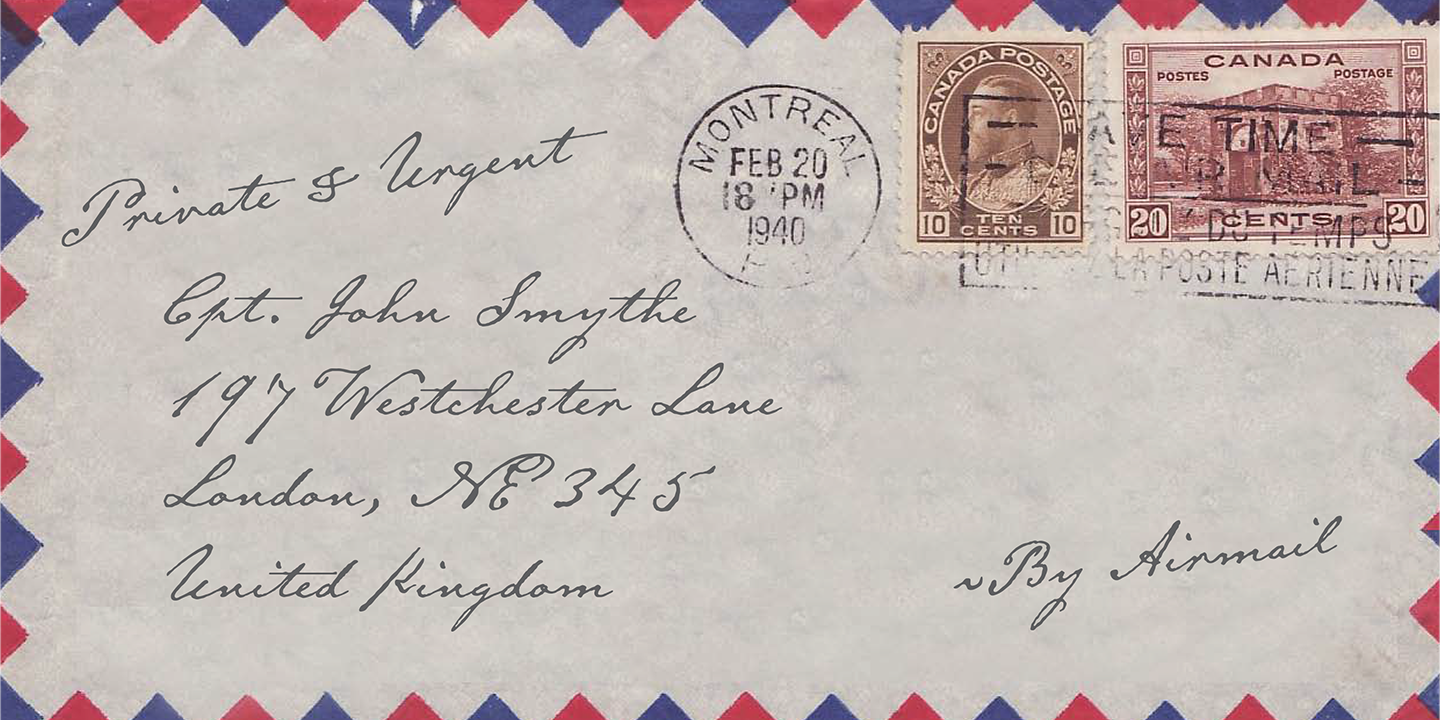 Private & Urgent
Cpt. John Smythe
197 Westchester Lane
London, NE 345
United Kingdom
~By Airmail
MONTREAL
FEB 20
18 PM
1940
CANADA POSTAGE
10 TEN CENTS 10
CANADA
POSTES POSTAGE
20 CENTS 20
TIME
DU TEMPS
LA POSTE AERIENNE